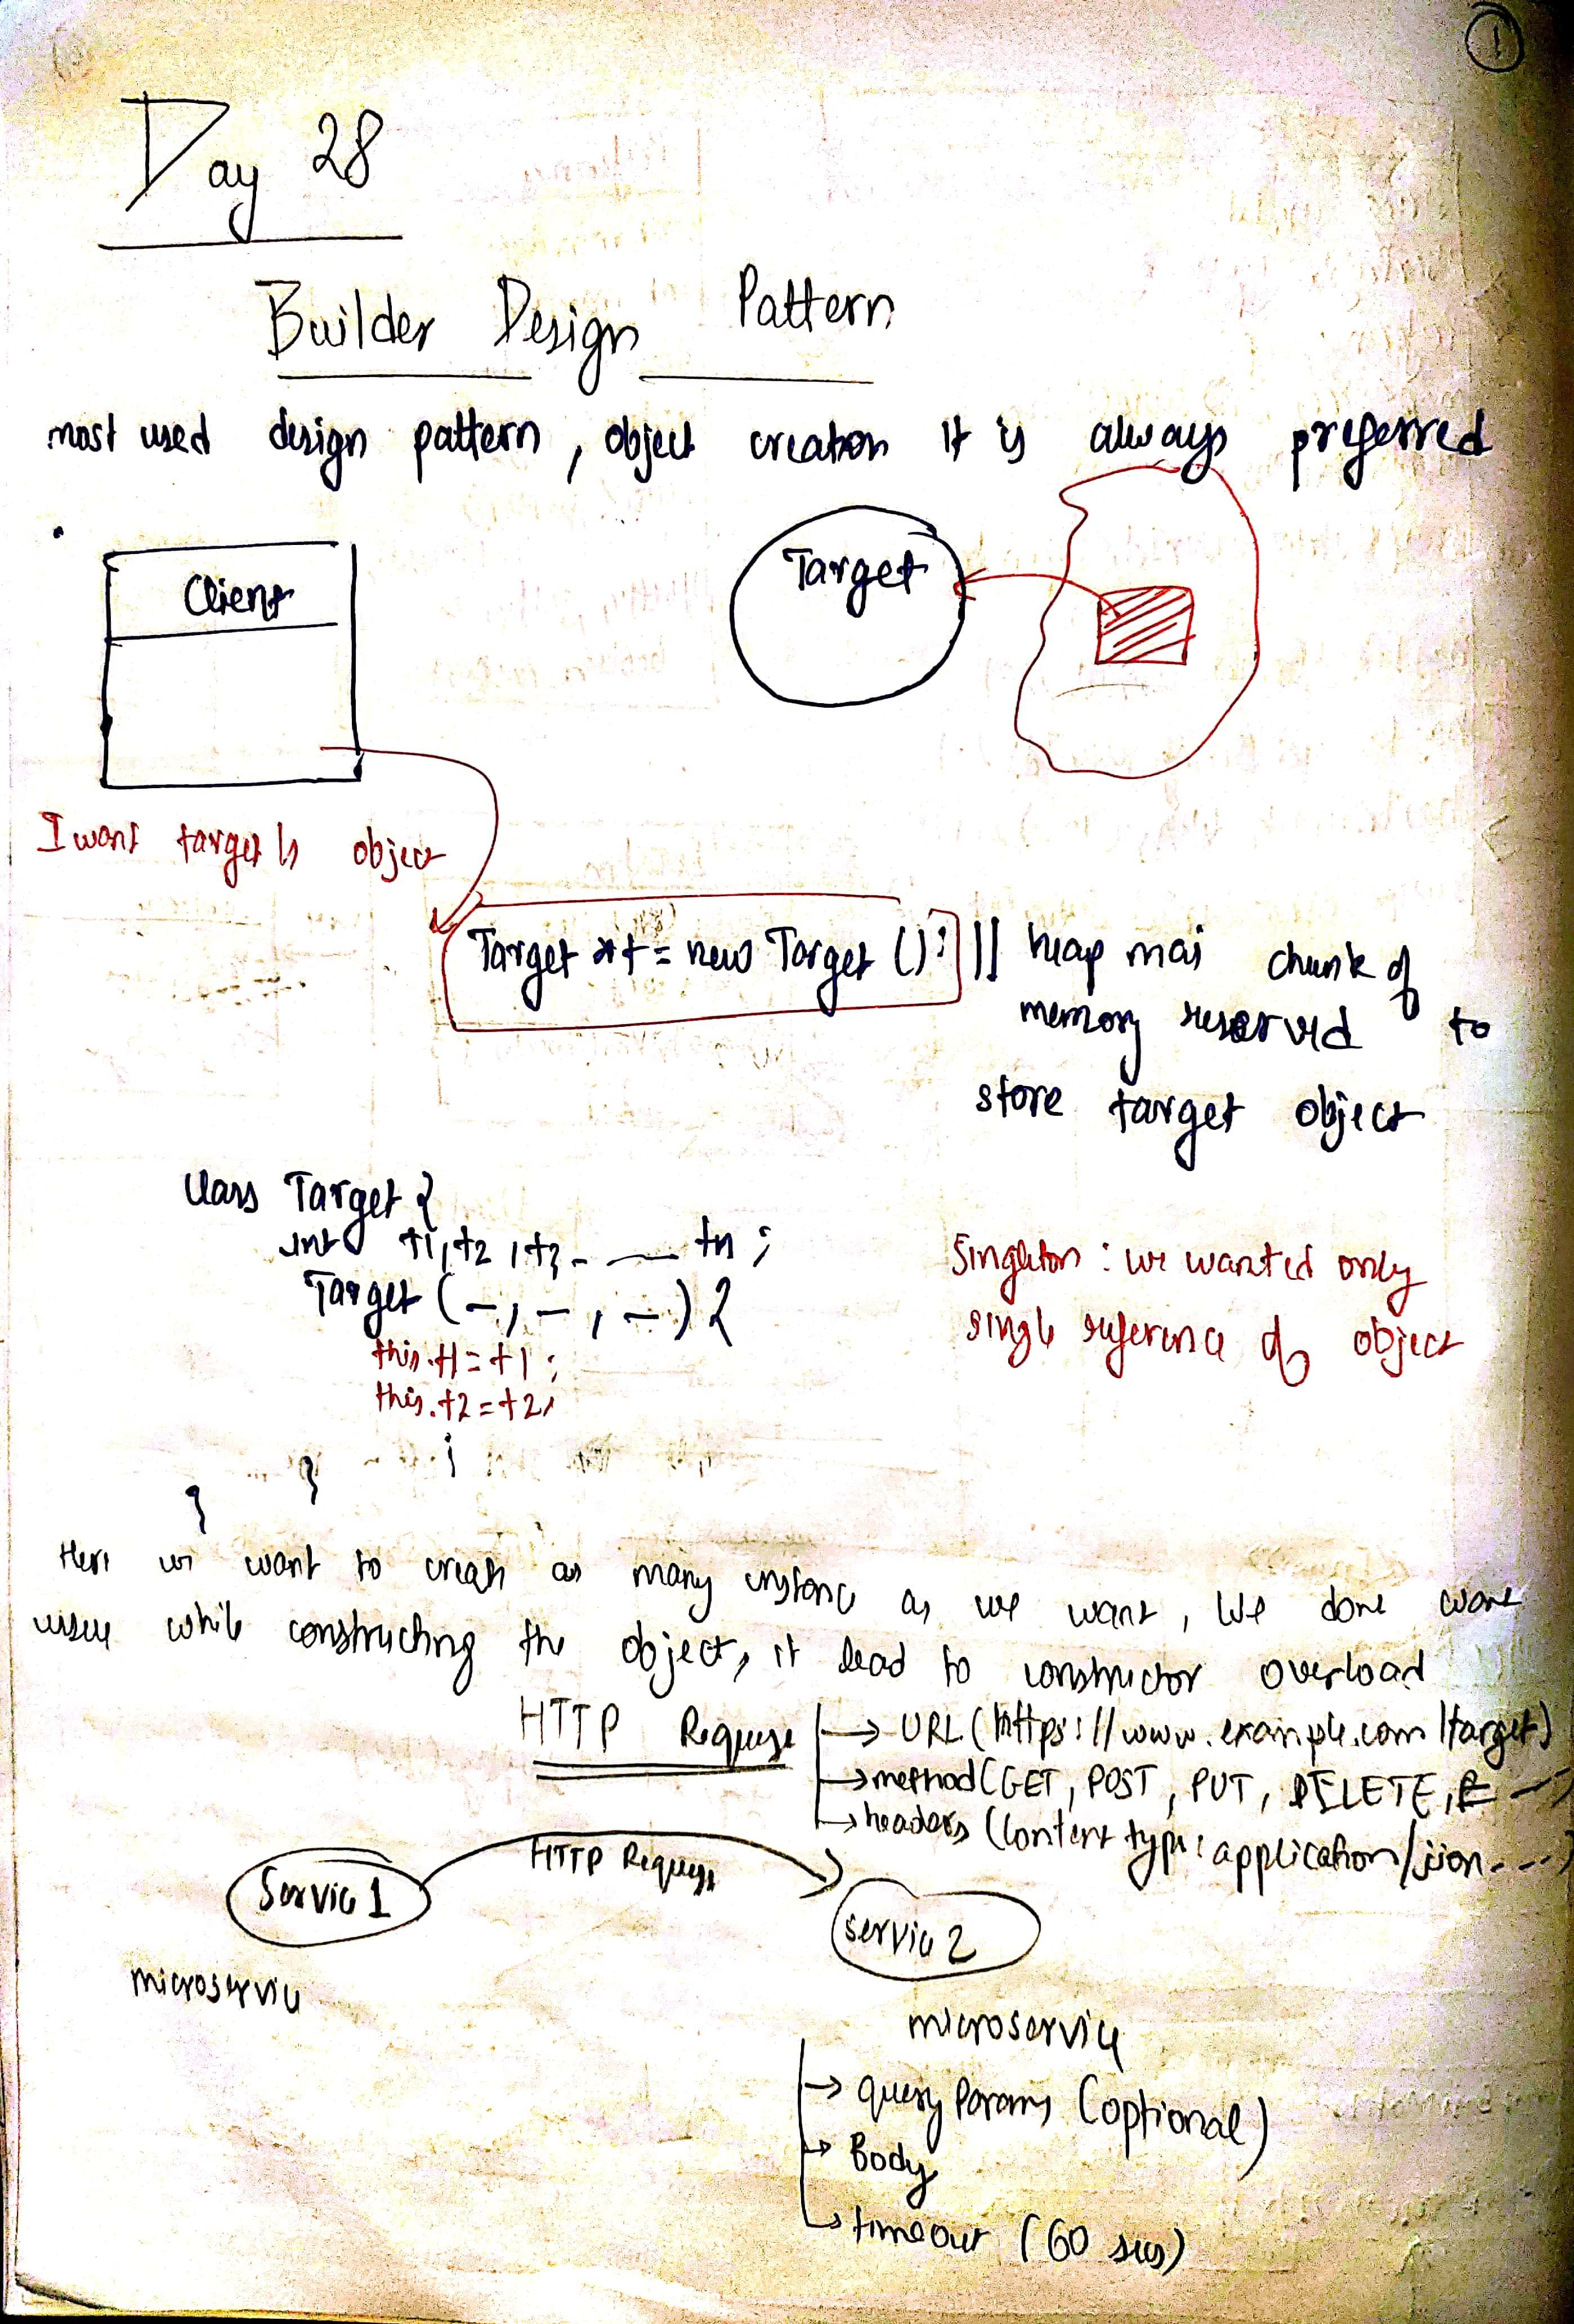 1
Day 28
Builder Design Pattern
most used design pattern, object creation it is always preferred
Client
Target
I want target's object
Target *t = new Target (); || heap mai chunk of
memory reserved to
store target object
class Target {
int t1, t2, t3 - — tn ;
Target ( –, –, – ) {
this.t1 = t1 ;
this.t2 = t2;
}
}
Singleton : we wanted only
single reference of object
Here we want to create as many instance as we want, We
while constructing the object, it lead to constructor overload
HTTP Request
→ URL (https://www.example.com/target)
→ method (GET, POST, PUT, DELETE,
→ headers (content type: application/json....)
HTTP Request
Service 1
service 2
microservice
microservice
→ query params (optional)
→ Body
→ timeout (60 secs)